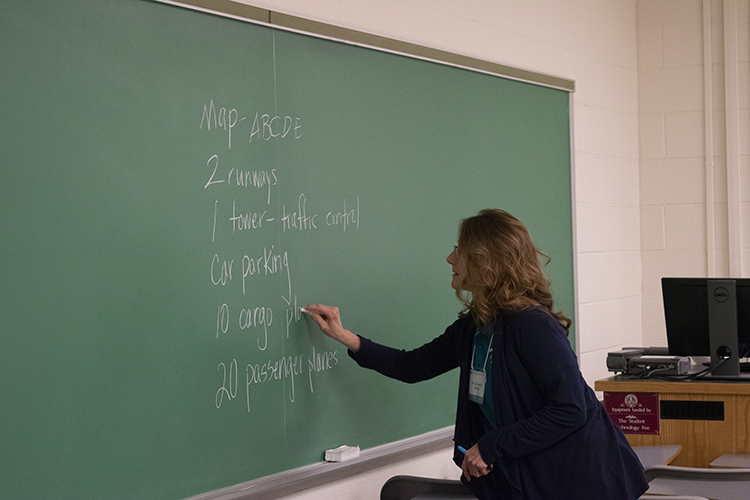 Map - ABCDE
2 runways
1 tower - traffic control
Car parking
10 cargo pla
20 passenger planes
DELL
Equipment funded by
The Student
Technology Fee